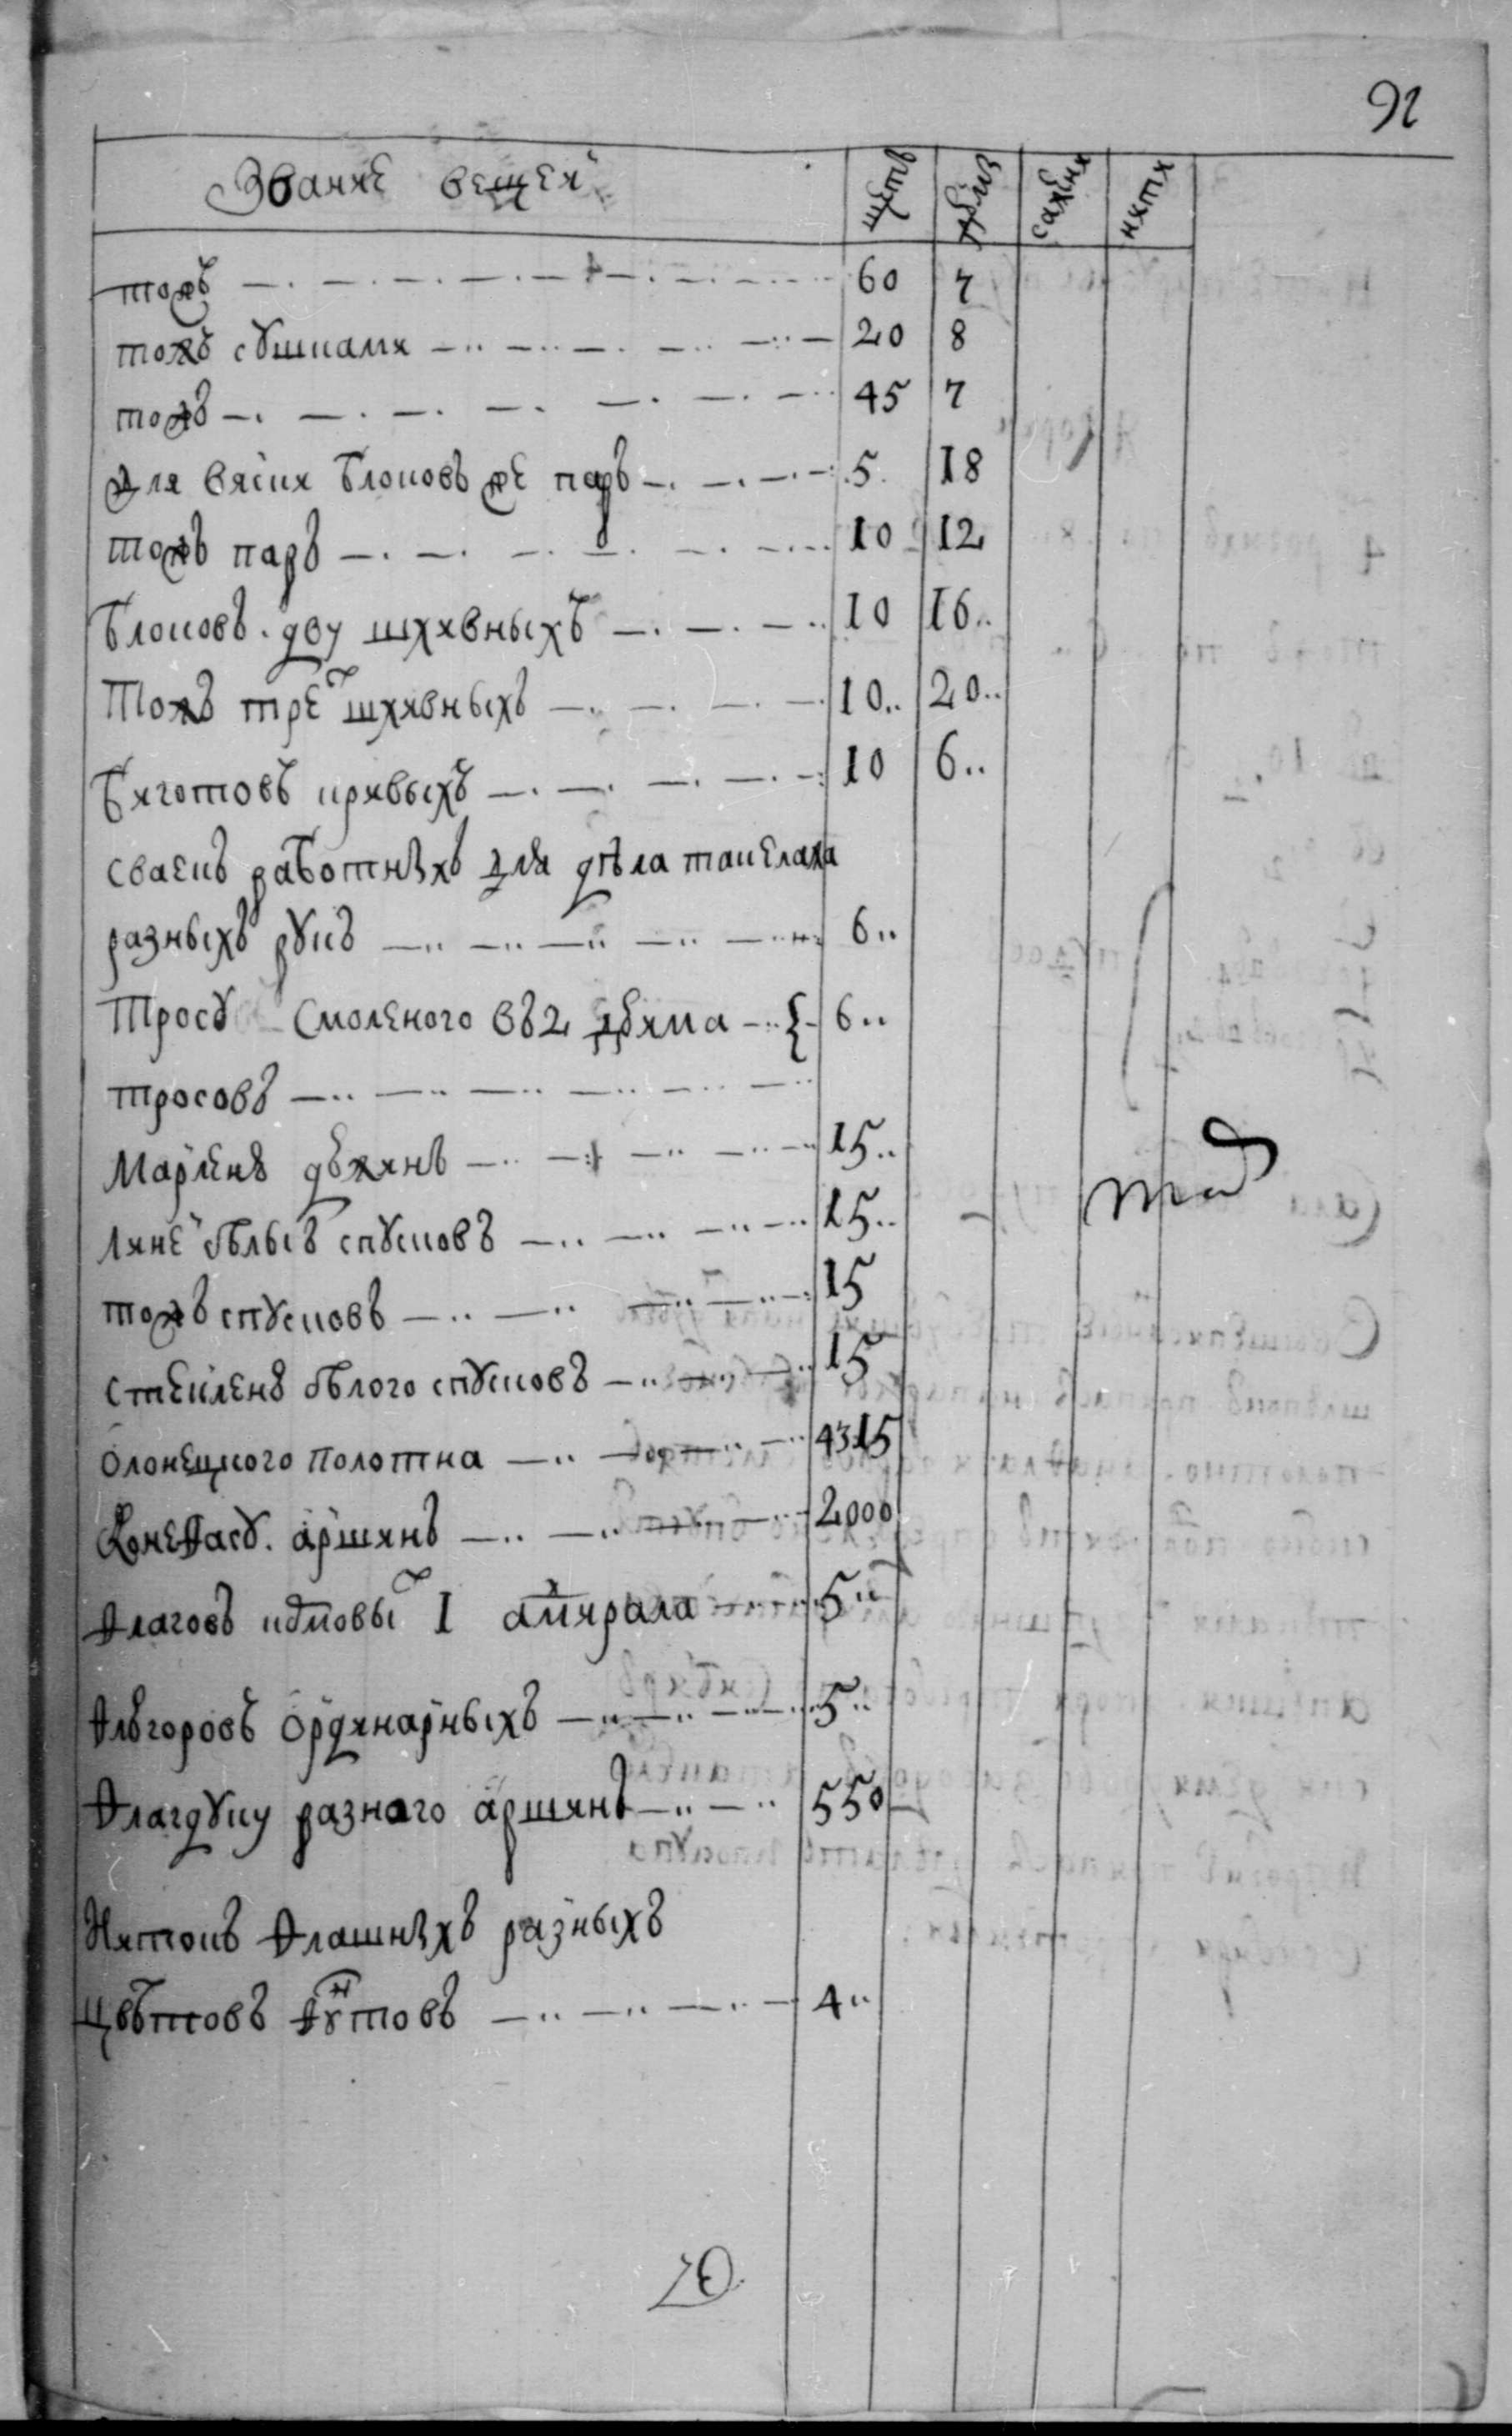 92
Звание вещей щетъ дюйм сажени нити
тожъ 60 7
тожъ сушками 20 8
тожъ 45 7
для вяских блоковъ же паръ 5 18
тожъ паръ 10 12
Блоковъ дву шхивныхъ 10 16
Тожъ трех шхивныхъ 10 20
Бяготовъ кривыхъ 10 6
сваекъ работныхъ для дѣла такелажа
разныхъ рукъ 6
Тросу смоленого въ 2 дюйма 6
тросовъ
Марлену дюжинъ 15
Линей бѣлыхъ спусковъ 15
тожъ спусковъ 15
стеклену бѣлого спусковъ 15
Олонецкого полотна 4315
Конефасу аршинъ 2000
Флаговъ кормовых I адмирала 5
Флюгоровъ ординарныхъ 5
Флагдуку разного аршинъ 550
Нитокъ флашныхъ разныхъ
цвѣтовъ фунтовъ 4